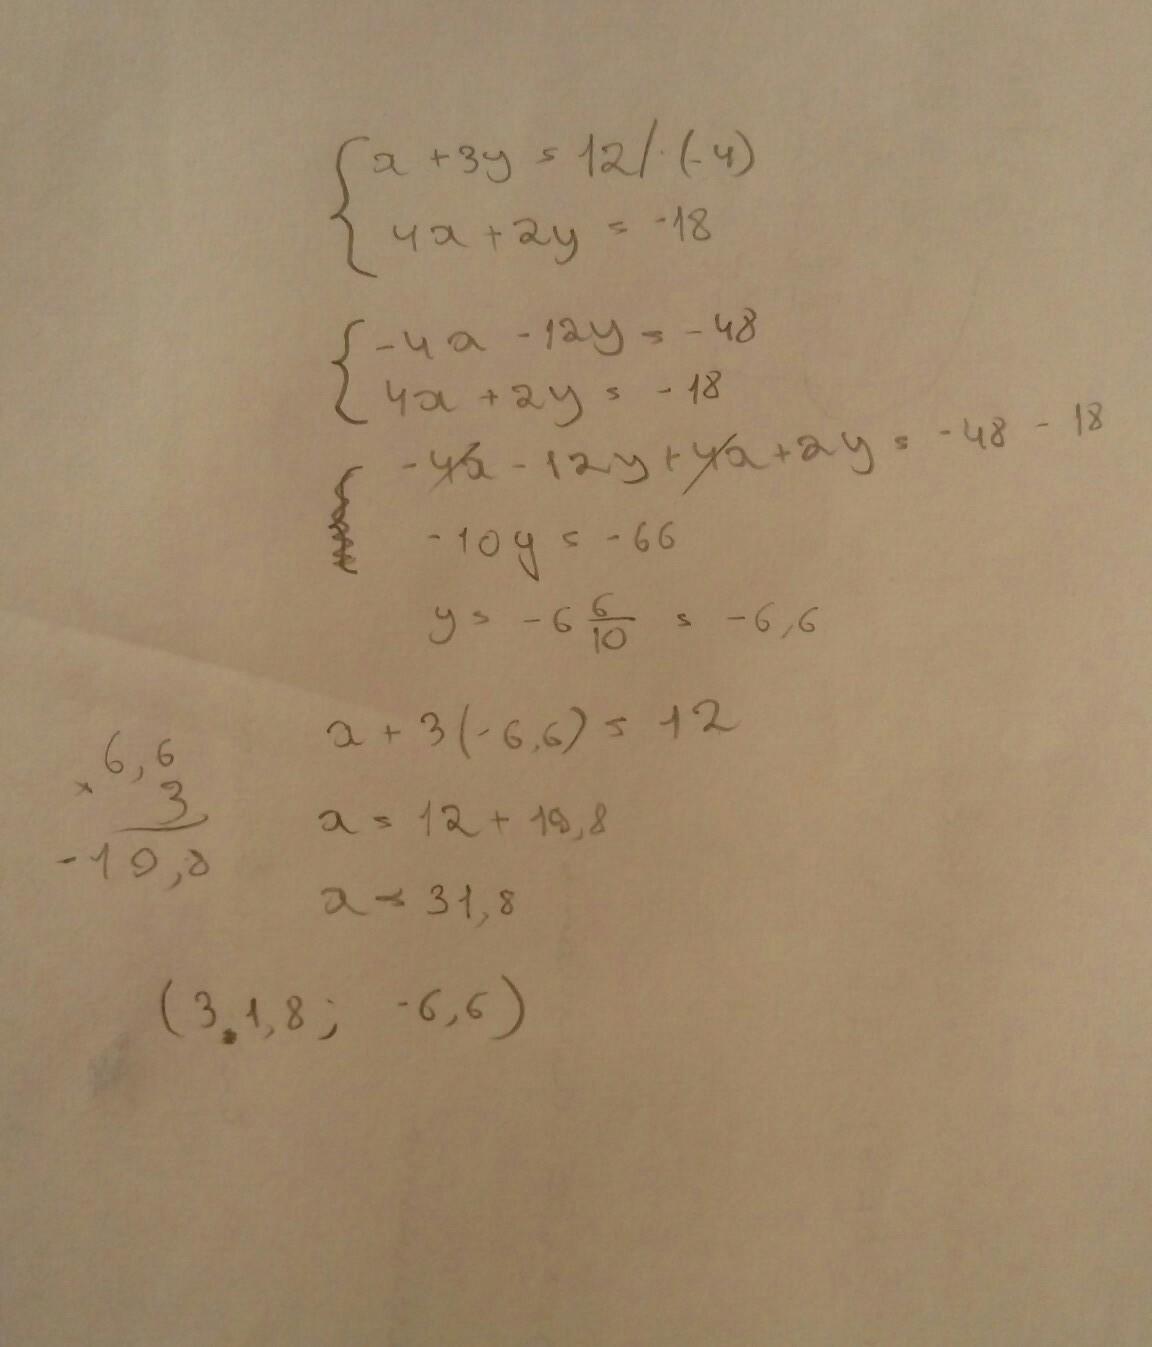 x + 3y = 12 / · (-4)
4x + 2y = -18
-4x - 12y = -48
4x + 2y = -18
-4x - 12y + 4x + 2y = -48 - 18
-10y = -66
y = -6 6/10 = -6,6
x + 3(-6,6) = 12
6,6
× 3
-19,8
x = 12 + 19,8
x = 31,8
(31,8; -6,6)